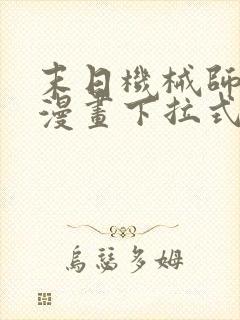 末日機械師
漫畫下拉式
烏瑟多姆